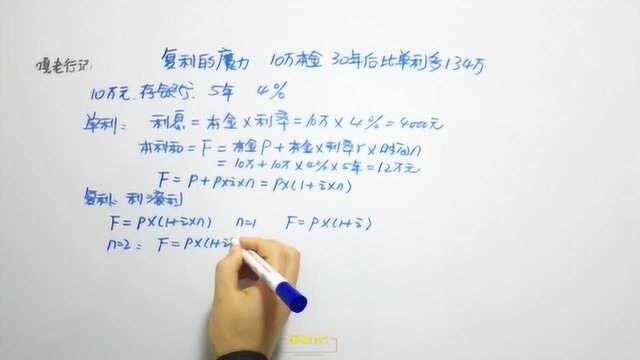 嘎老行记: 复利的魔力 10万本金 30年后比单利多134万
10万元 存银行 5年 4%
单利: 利息=本金×利率=10万×4%=4000元
本利和=F=本金P+本金×利率r×时间n
=10万+10万×4%×5年=12万元
F=P+P×i×n=P×(1+i×n)
复利: 利滚利
F=P×(1+i×n) n=1 F=P×(1+i)
n=2: F=P×(1+i)